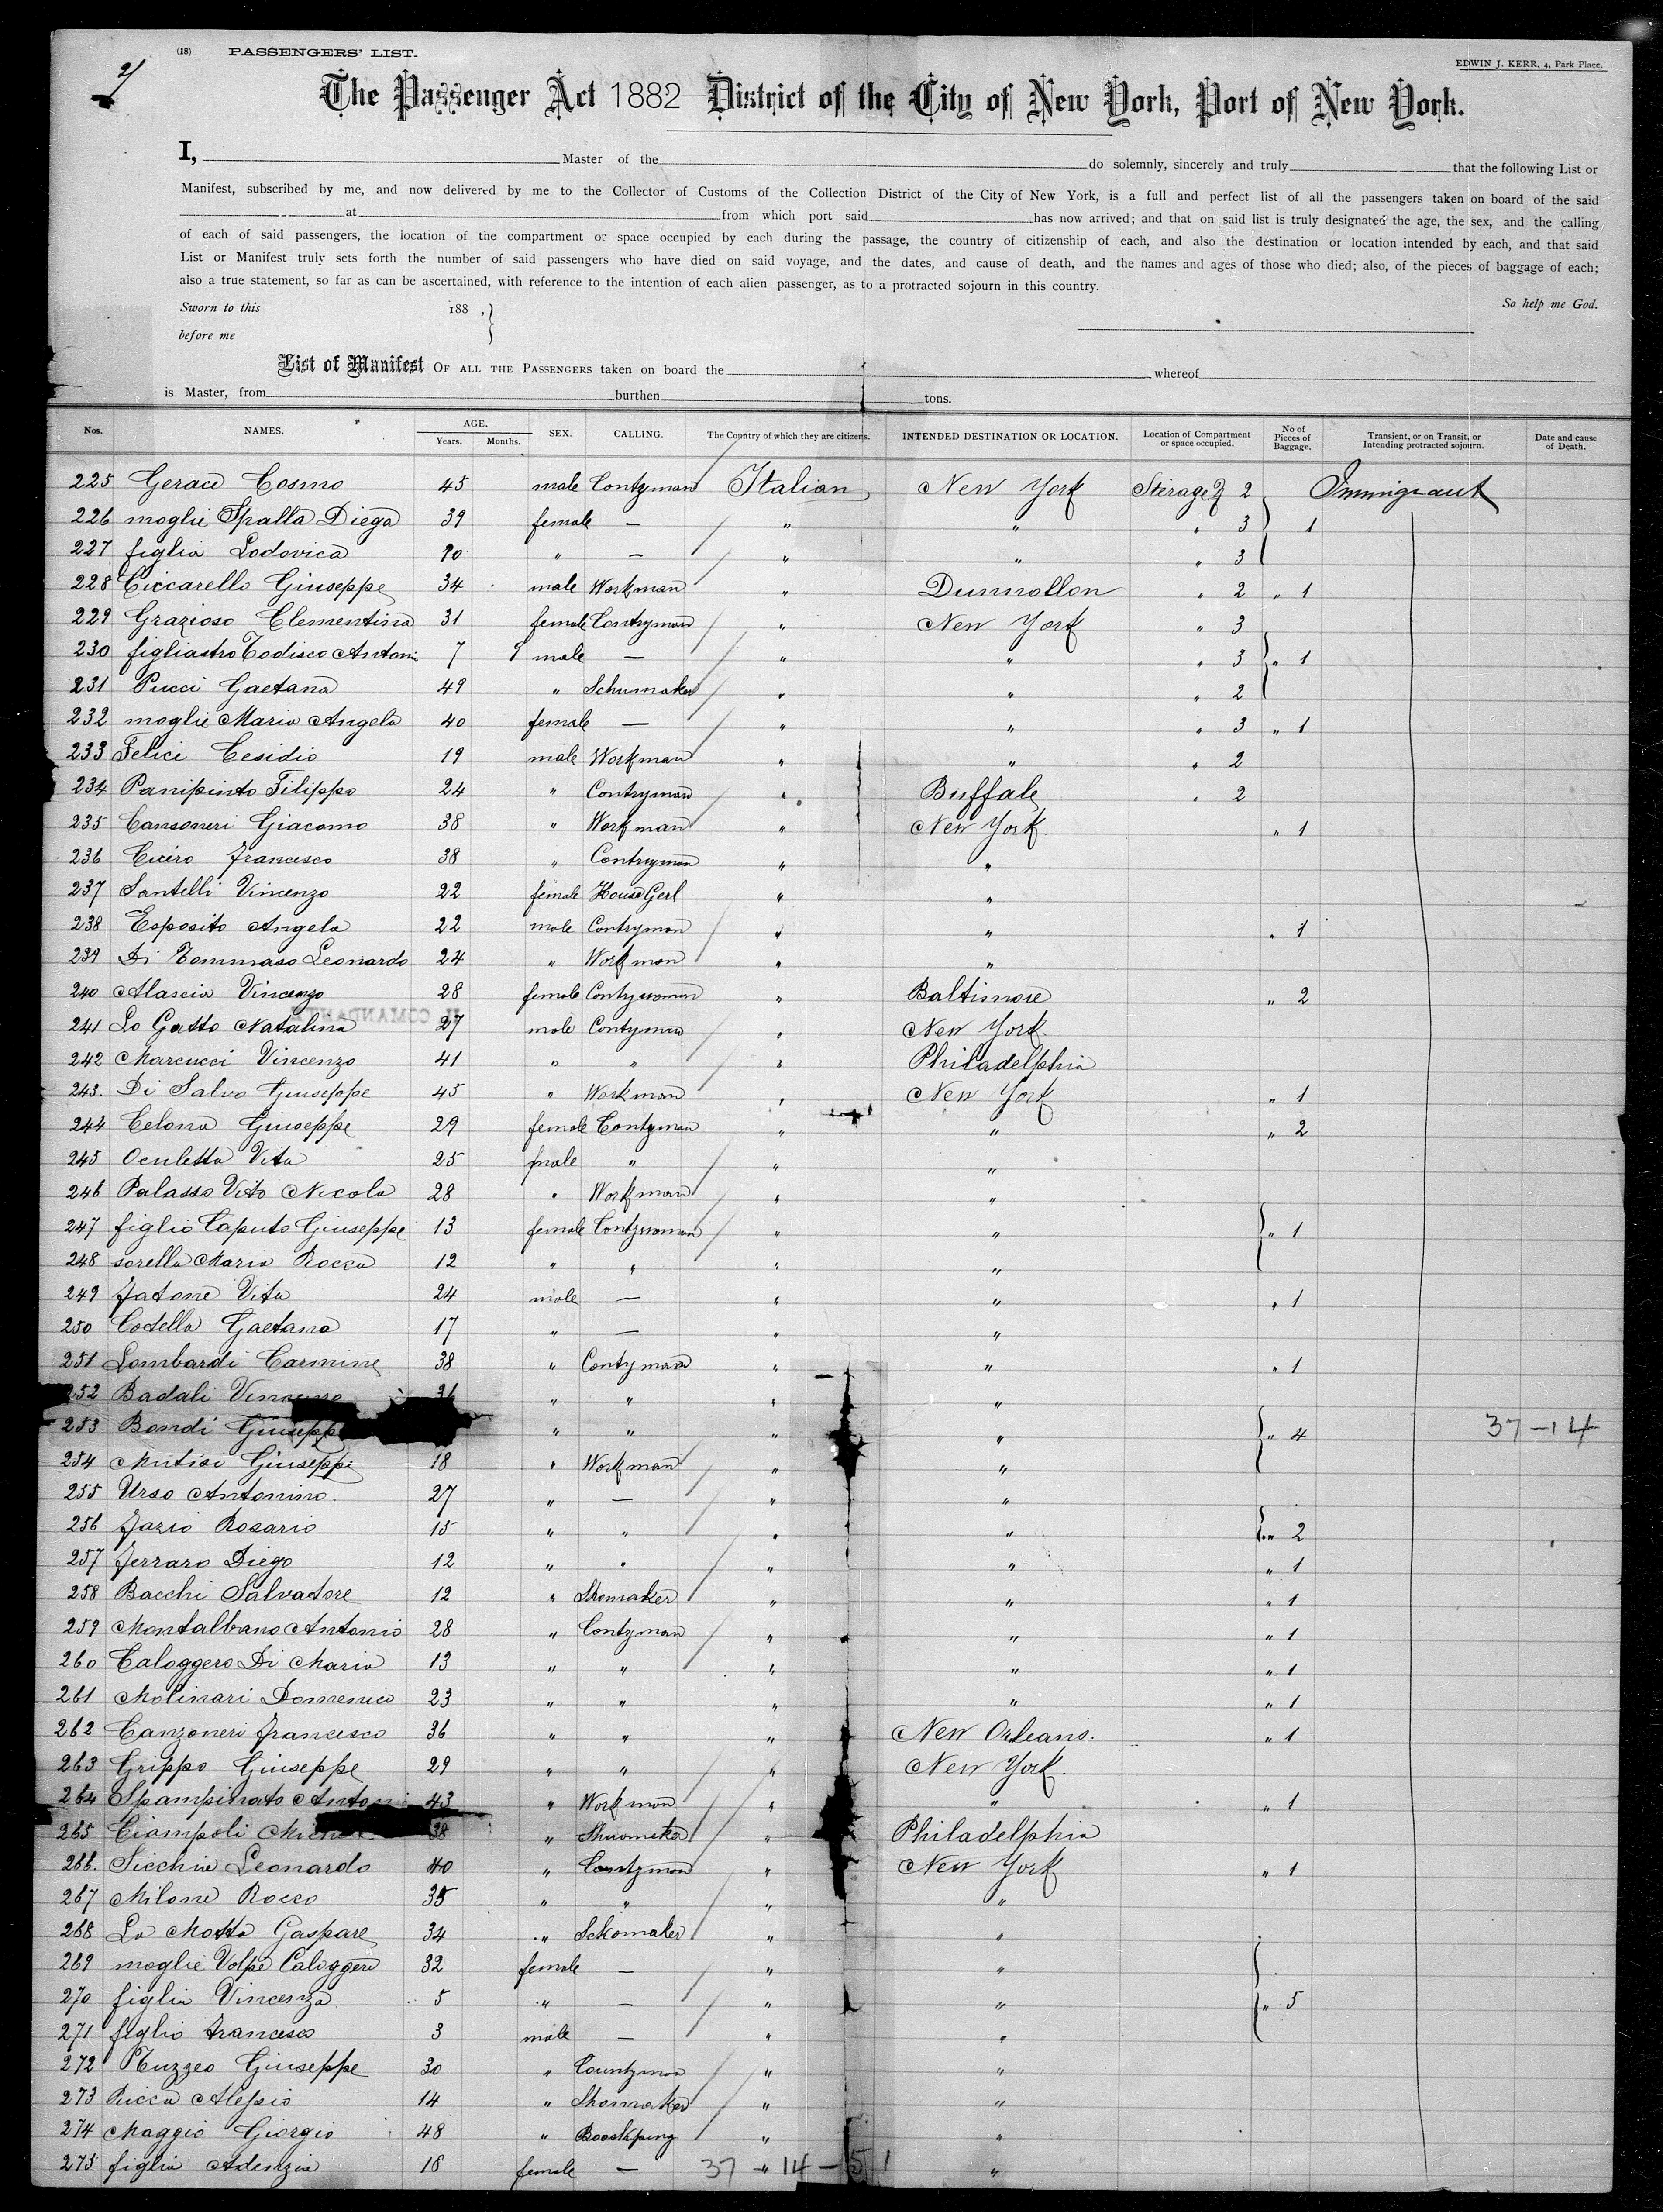 2/
(18) PASSENGERS' LIST.
EDWIN J. KERR, 4, Park Place.
The Passenger Act 1882 District of the City of New York, Port of New York.
I, Master of the do solemnly, sincerely and truly that the following List or
Manifest, subscribed by me, and now delivered by me to the Collector of Customs of the Collection District of the City of New York, is a full and perfect list of all the passengers taken on board of the said
at from which port said has now arrived; and that on said list is truly designated the age, the sex, and the calling
of each of said passengers, the location of the compartment or space occupied by each during the passage, the country of citizenship of each, and also the destination or location intended by each, and that said
List or Manifest truly sets forth the number of said passengers who have died on said voyage, and the dates, and cause of death, and the names and ages of those who died; also, of the pieces of baggage of each;
also a true statement, so far as can be ascertained, with reference to the intention of each alien passenger, as to a protracted sojourn in this country.
Sworn to this 188 , So help me God.
before me
List of Manifest OF ALL THE PASSENGERS taken on board the whereof
is Master, from burthen tons.
Nos. NAMES. AGE. Years. Months. SEX. CALLING. The Country of which they are citizens. INTENDED DESTINATION OR LOCATION. Location of Compartment or space occupied. No of Pieces of Baggage. Transient, or on Transit, or Intending protracted sojourn. Date and cause of Death.
225 Gerace Cosmo 45 male Contyman Italian New York Sterage 2 Immigrant
226 moglie Spalla Diega 39 female — " " " 3 1
227 figlia Lodovica 10 " — " " " 3
228 Ciccarello Giuseppe 34 male Workman " Dunnollon " 2 " 1
229 Grazioso Clementina 31 female Contryman " New York " 3
230 figliastro Todisco Antoni 7 male — " " " 3 " 1
231 Pucci Gaetana 49 " Schumaker " " " 2
232 moglie Maria Angela 40 female — " " " 3 " 1
233 Felici Cesidio 19 male Workman " " " 2
234 Panipinto Filippo 24 " Contryman " Buffalo " 2
235 Cansoneri Giacomo 38 " Workman " New York " 1
236 Cicero Francesco 38 " Contryman " "
237 Santelli Vincenzo 22 female House Gerl " "
238 Esposito Angela 22 male Contryman " " " 1
239 Di Tommaso Leonardo 24 " Workman " "
240 Alascia Vincenzo 28 female Contywoman " Baltimore " 2
241 Lo Gatto Natalina 27 male Contyman " New York.
242 Marcucci Vincenzo 41 " " " Philadelphia
243. Di Salvo Giuseppe 45 " Workman " New York " 1
244 Celona Giuseppe 29 female Contyman " " " 2
245 Oculetta Vita 25 male " " "
246 Palasso Vito Nicola 28 " Workman " "
247 figlio Caputo Giuseppe 13 female Contywoman " " " 1
248 sorella Maria Rocca 12 " " " "
249 Jatone Vita 24 male — " " " 1
250 Cotella Gaetana 17 " — " "
251 Lombardi Carmine 38 " Contyman " " " 1
252 Badali Vincenzo " " " "
253 Bondi Giuseppe " " " " " 4 37-14
254 Mutisi Giuseppe 18 " Workman " "
255 Urso Antonino. 27 " — " "
256 Fazio Rosario 15 " " " " " 2
257 Ferraro Diego 12 " " " " " 1
258 Bacchi Salvatore 12 " Shomaker " " " 1
259 Montalbano Antonio 28 " Contyman " " " 1
260 Caloggero Di Maria 13 " " " " " 1
261 Molinari Domenico 23 " " " " " 1
262 Canzoneri Francesco 36 " " " New Orleans. " 1
263 Grippo Giuseppe 29 " " " New York.
264 Spampinato Anton 43 " Workman " " " 1
265 Ciampoli 38 " Shuomeker " Philadelphia
266. Sicchia Leonardo 40 " Contyman " New York " 1
267 Milone Rocco 35 " " " "
268 La Motta Gaspare 34 " Schomaker " "
269 moglie Volpe Caloggera 32 female — " "
270 figlia Vincenza 5 " — " " " 5
271 figlio Francesco 3 male — " "
272 Tuzzeo Giuseppe 30 " Countyman " "
273 Ricca Alessio 14 " Shomaker " "
274 Maggio Giorgio 48 " Boockping " "
275 figlia Adenzia 18 female — " "
37 - 14 - 51